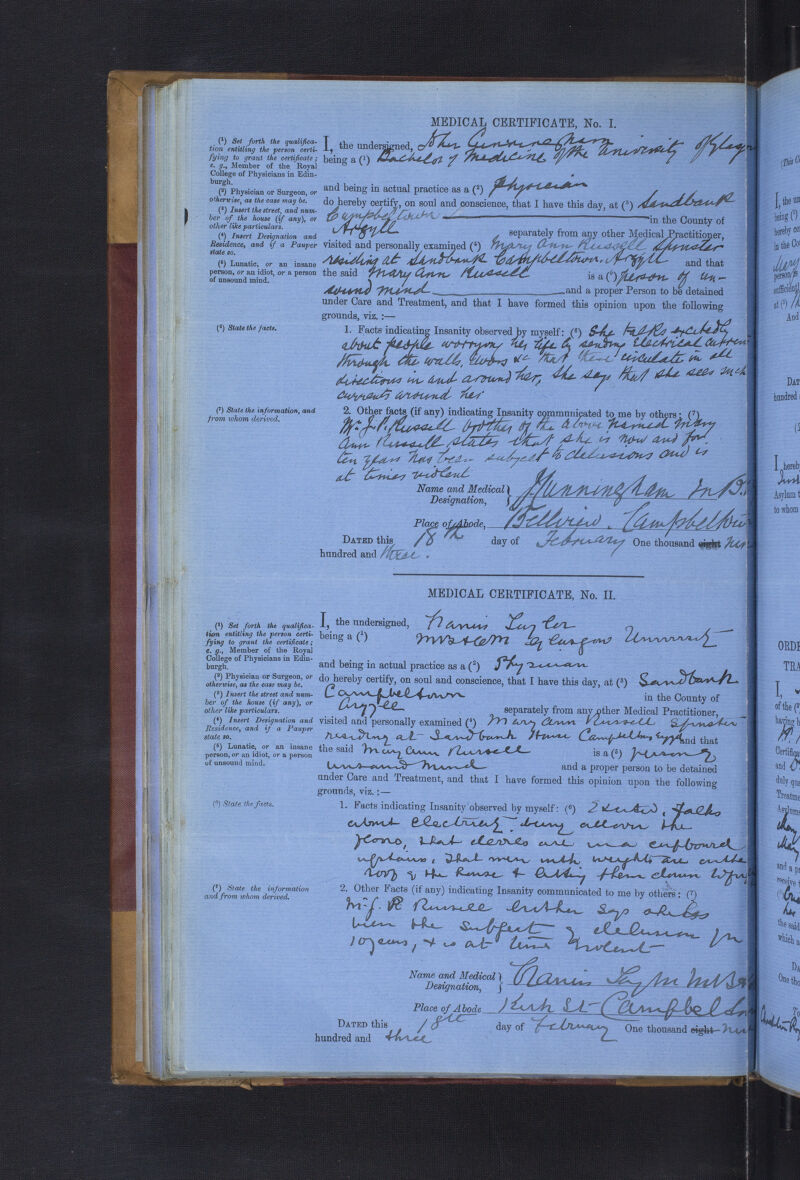 MEDICAL CERTIFICATE, No. I.
(¹) Set forth the qualifica-
tion entitling the person certi-
fying to grant the certificate;
e. g., Member of the Royal
College of Physicians in Edin-
burgh.
(²) Physician or Surgeon, or
otherwise, as the case may be.
(³) Insert the street, and num-
ber of the house (if any), or
other like particulars.
(⁴) Insert Designation and
Residence, and if a Pauper
state so.
(⁵) Lunatic, or an insane
person, or an idiot, or a person
of unsound mind.
I, the undersigned, John Cunningham
being a (¹) Bachelor of Medicine of the University of Glasgo
and being in actual practice as a (²) Physician
do hereby certify, on soul and conscience, that I have this day, at (³) Sandbank
Campbeltown in the County of
Argyll separately from any other Medical Practitioner,
visited and personally examined (⁴) Mary Ann Russell Spinster
residing at Sandbank Campbeltown, Argyll and that
the said Mary Ann Russell is a (⁵) person of un-
sound mind and a proper Person to be detained
under Care and Treatment, and that I have formed this opinion upon the following
grounds, viz. :—
(⁶) State the facts.
1. Facts indicating Insanity observed by myself: (⁶) She talks excitedly
about people worrying her life by sending Electrical curren
through the walls, doors &c that these circulate in all
directions in and around her, She says that she sees such
currents around her
(⁷) State the information, and
from whom derived.
2. Other facts (if any) indicating Insanity communicated to me by others: (⁷)
Mr J. P. Russell brother of the above named Mary
Ann Russell states that she is now and for
ten years has been subject to delusions and is
at times violent
Name and Medical
Designation, JCunningham M.B.
Place of Abode, Bellview. Campbeltow
DATED this 18th day of February One thousand eight nin
hundred and three.
MEDICAL CERTIFICATE, No. II.
(¹) Set forth the qualifica-
tion entitling the person certi-
fying to grant the certificate;
e. g., Member of the Royal
College of Physicians in Edin-
burgh.
(²) Physician or Surgeon, or
otherwise, as the case may be.
(³) Insert the street and num-
ber of the house (if any), or
other like particulars.
(⁴) Insert Designation and
Residence, and if a Pauper
state so.
(⁵) Lunatic, or an insane
person, or an idiot, or a person
of unsound mind.
I, the undersigned, Taylor
being a (¹) MB & CM Glasgow University
and being in actual practice as a (²) Physician
do hereby certify, on soul and conscience, that I have this day, at (³) Sandbank
Campbeltown in the County of
Argyll separately from any other Medical Practitioner,
visited and personally examined (⁴) Mary Ann Russell Spinster
residing at Sandbank House and that
the said Mary Ann Russell is a (⁵) person of
unsound mind and a proper person to be detained
under Care and Treatment, and that I have formed this opinion upon the following
grounds, viz. :—
(⁶) State the facts.
1. Facts indicating Insanity observed by myself: (⁶) Excited, talks
about electricity being all over the
that devils are in a cupboard
upstairs, that men with weights are on the
roof of the house & letting them down
(⁷) State the information
and from whom derived.
2. Other Facts (if any) indicating Insanity communicated to me by others: (⁷)
Mr J. P. Russell brother says she has
been the subject of delusion for
10 years, & is at times violent
Name and Medical
Designation, Taylor MB &
Place of Abode Kirk St Campbelto
DATED this 18th day of February One thousand eight nin
hundred and three